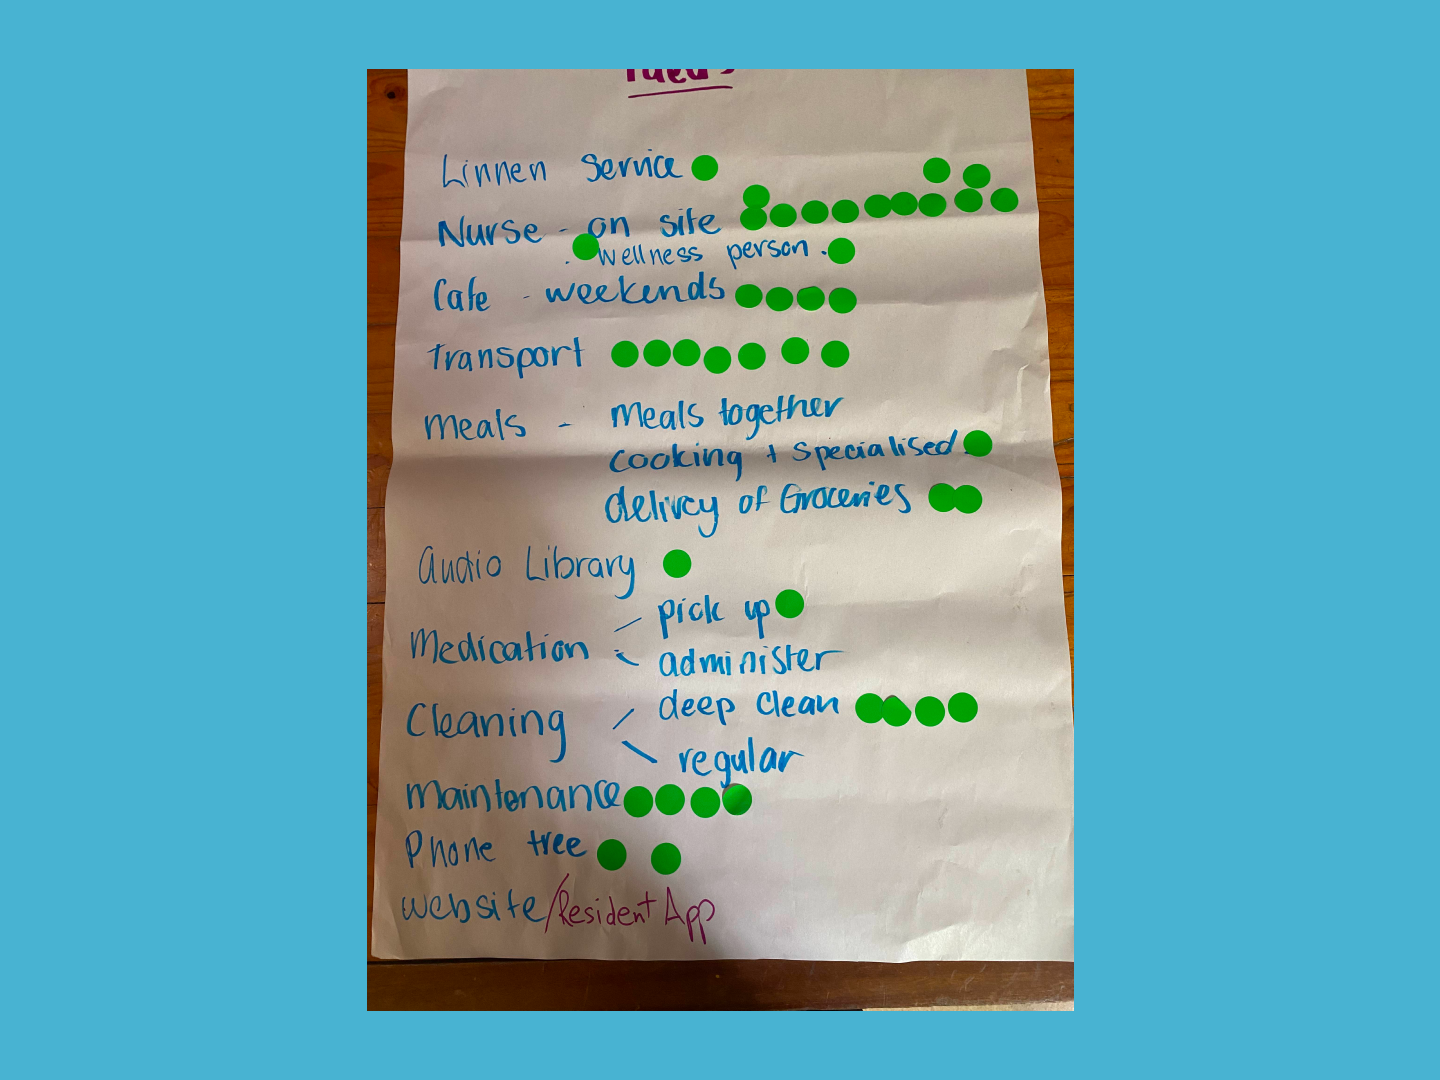 Ideas
Linnen Service
Nurse - on site
. wellness person .
Cafe - weekends
Transport
Meals - Meals together
cooking + specialised .
delivey of Groceries
Audio Library
Medication pick up
administer
Cleaning deep clean
regular
Maintenance
Phone tree
website/Resident App